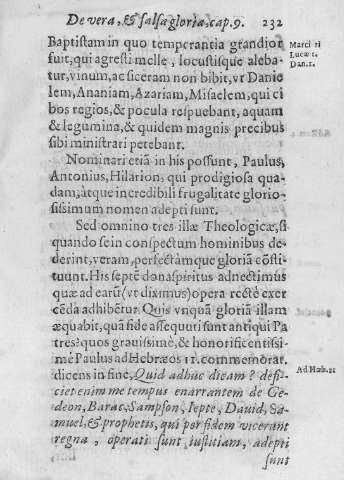 De vera, & falsa gloria, cap. 9. 232
Baptistam in quo temperantia grandior
fuit, qui agresti melle, locustisque aleba-
tur, vinum, ac siceram non bibit, vt Danie
lem, Ananiam, Azariam, Misaelem, qui ci
bos regios, & pocula respuebant, aquam
& legumina, & quidem magnis precibus
sibi ministrari petebant.
Marci 11
Lucæ 1.
Dan. 1.
Nominari etiã in his possunt, Paulus,
Antonius, Hilarion, qui prodigiosa qua-
dam, atque incredibili frugalitate glorio-
sissimum nomen adepti sunt.
Sed omnino tres illæ Theologicæ, si
quando se in conspectum hominibus de-
derint, veram, perfectamque gloriã cõsti-
tuunt. His septẽ dona spiritus adnectimus
quæ ad earũ (vt diximus) opera rectè exer
cẽda adhibẽtur. Quis vnquã gloriã illam
æquabit, quã fide assequuti sunt antiqui Pa
tres? quos grauissimè, & honorificentissi-
mè Paulus ad Hebræos 11. commemorat.
dicens in fine, Quid adhuc dicam? defi-
ciet enim me tempus enarrantem de Ge-
deon, Barac, Sampson, Iepte, Dauid, Sa-
muel, & prophetis, qui per fidem vicerunt
regna, operati sunt iustitiam, adepti
Ad Hæb. 11
sunt